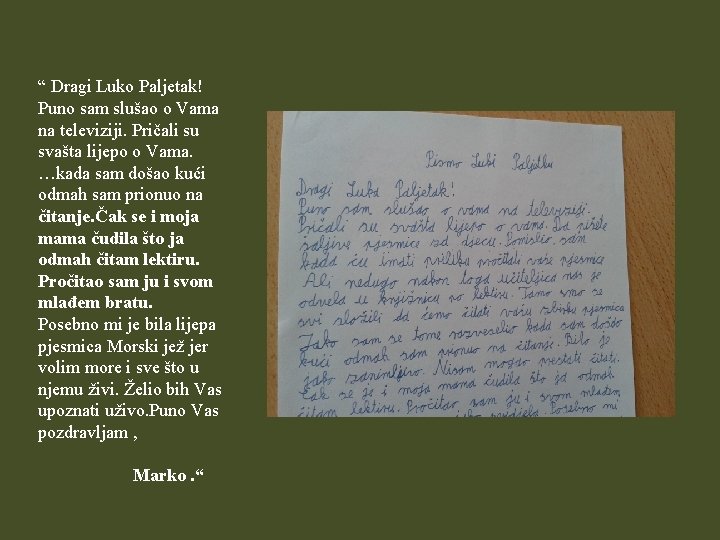 “ Dragi Luko Paljetak!
Puno sam slušao o Vama
na televiziji. Pričali su
svašta lijepo o Vama.
…kada sam došao kući
odmah sam prionuo na
čitanje.Čak se i moja
mama čudila što ja
odmah čitam lektiru.
Pročitao sam ju i svom
mlađem bratu.
Posebno mi je bila lijepa
pjesmica Morski jež jer
volim more i sve što u
njemu živi. Želio bih Vas
upoznati uživo.Puno Vas
pozdravljam ,
Marko .“
Pismo Luki Paljetku
Dragi Luka Paljetak!
Puno sam slušao o vama na televiziji.
Pričali su svašta lijepo o vama. Da pišete
šaljive pjesmice za djecu. Pomislio sam
kada ću imati priliku pročitati vaše pjesmice
Ali nedugo nakon toga učiteljica nas je
odvela u knjižnicu po lektiru. Tamo smo se
svi složili da ćemo čitati vašu zbirku pjesmica
Jako sam se tome razveselio kada sam došao
kući odmah sam prionuo na čitanje. Bilo je
jako zanimljivo. Nisam mogao prestati čitati.
Čak se je i moja mama čudila što ja odmah
čitam lektiru. Pročitao sam ju i svom mlađem
Posebno mi